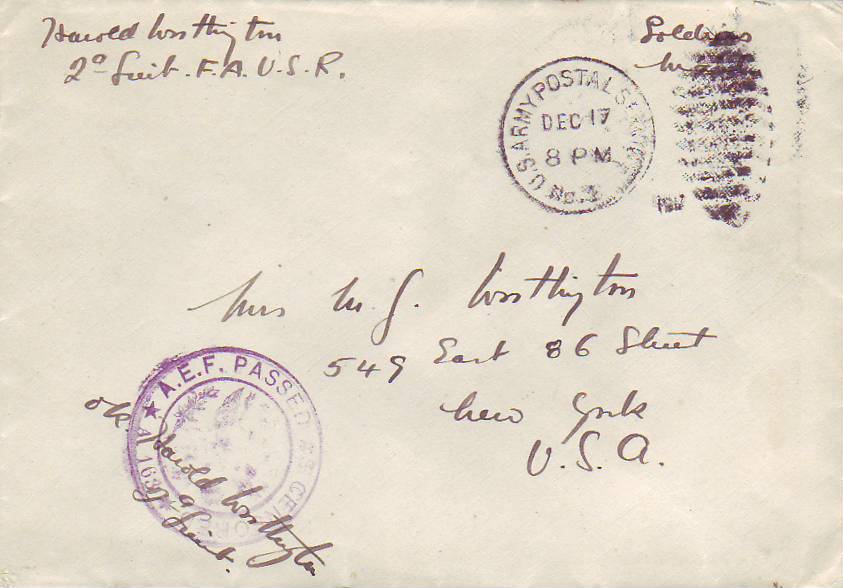 Harold Worthington
2ᵈ Lieut. F. A. U. S. R.
Soldiers
Mail
U.S. ARMY POSTAL SERVICE
DEC 17
8 PM
No. 3
1917
Mrs M. J. Worthington
549 East 86 Street
New York
U. S. A.
★ A.E.F. PASSED AS CENSORED ★
A 1639
O.K.
Harold Worthington
2ᵈ Lieut.